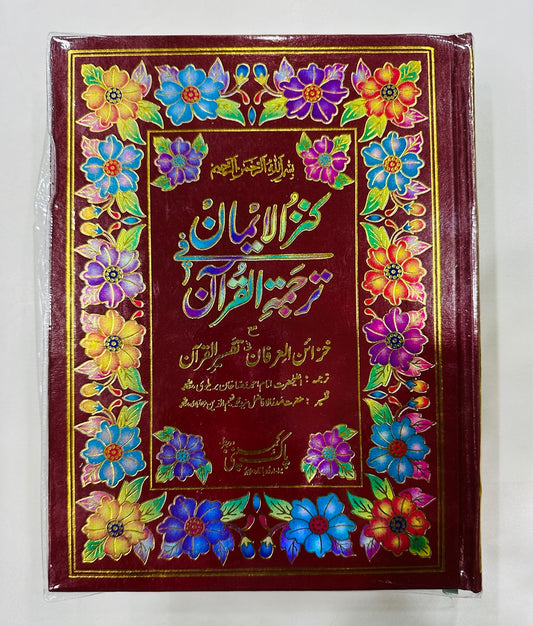 بسم اللہ الرحمن الرحیم
کنز الایمان
فی
ترجمۃ القرآن
مع
خزائن العرفان فی تفسیر القرآن
ترجمہ : اعلیٰحضرت امام احمد رضا خان بریلوی
تفسیر : حضرت صدرالافاضل سید محمد نعیم الدین مرادآبادی
پاک کمپنی